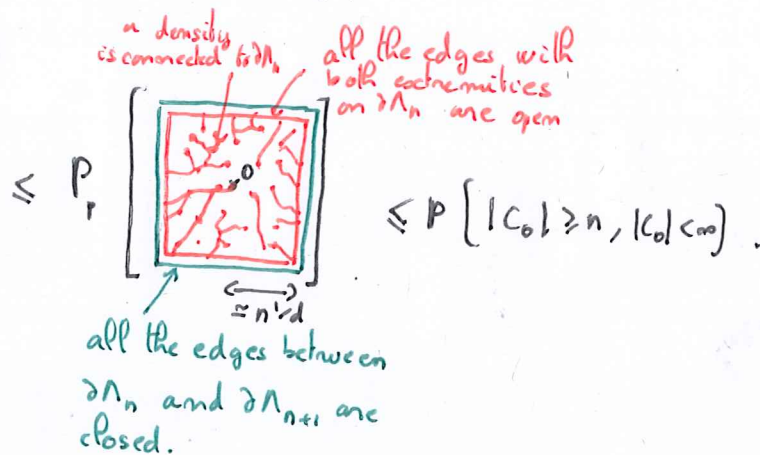 a density
is connected to ∂Λₙ
all the edges with
both extremities
on ∂Λₙ are open
≤ P_p [ 0 ] ≤ P [ |C₀| ≥ n, |C₀| < ∞ ] .
≃ n^{1/d}
all the edges between
∂Λₙ and ∂Λₙ₊₁ are
closed.